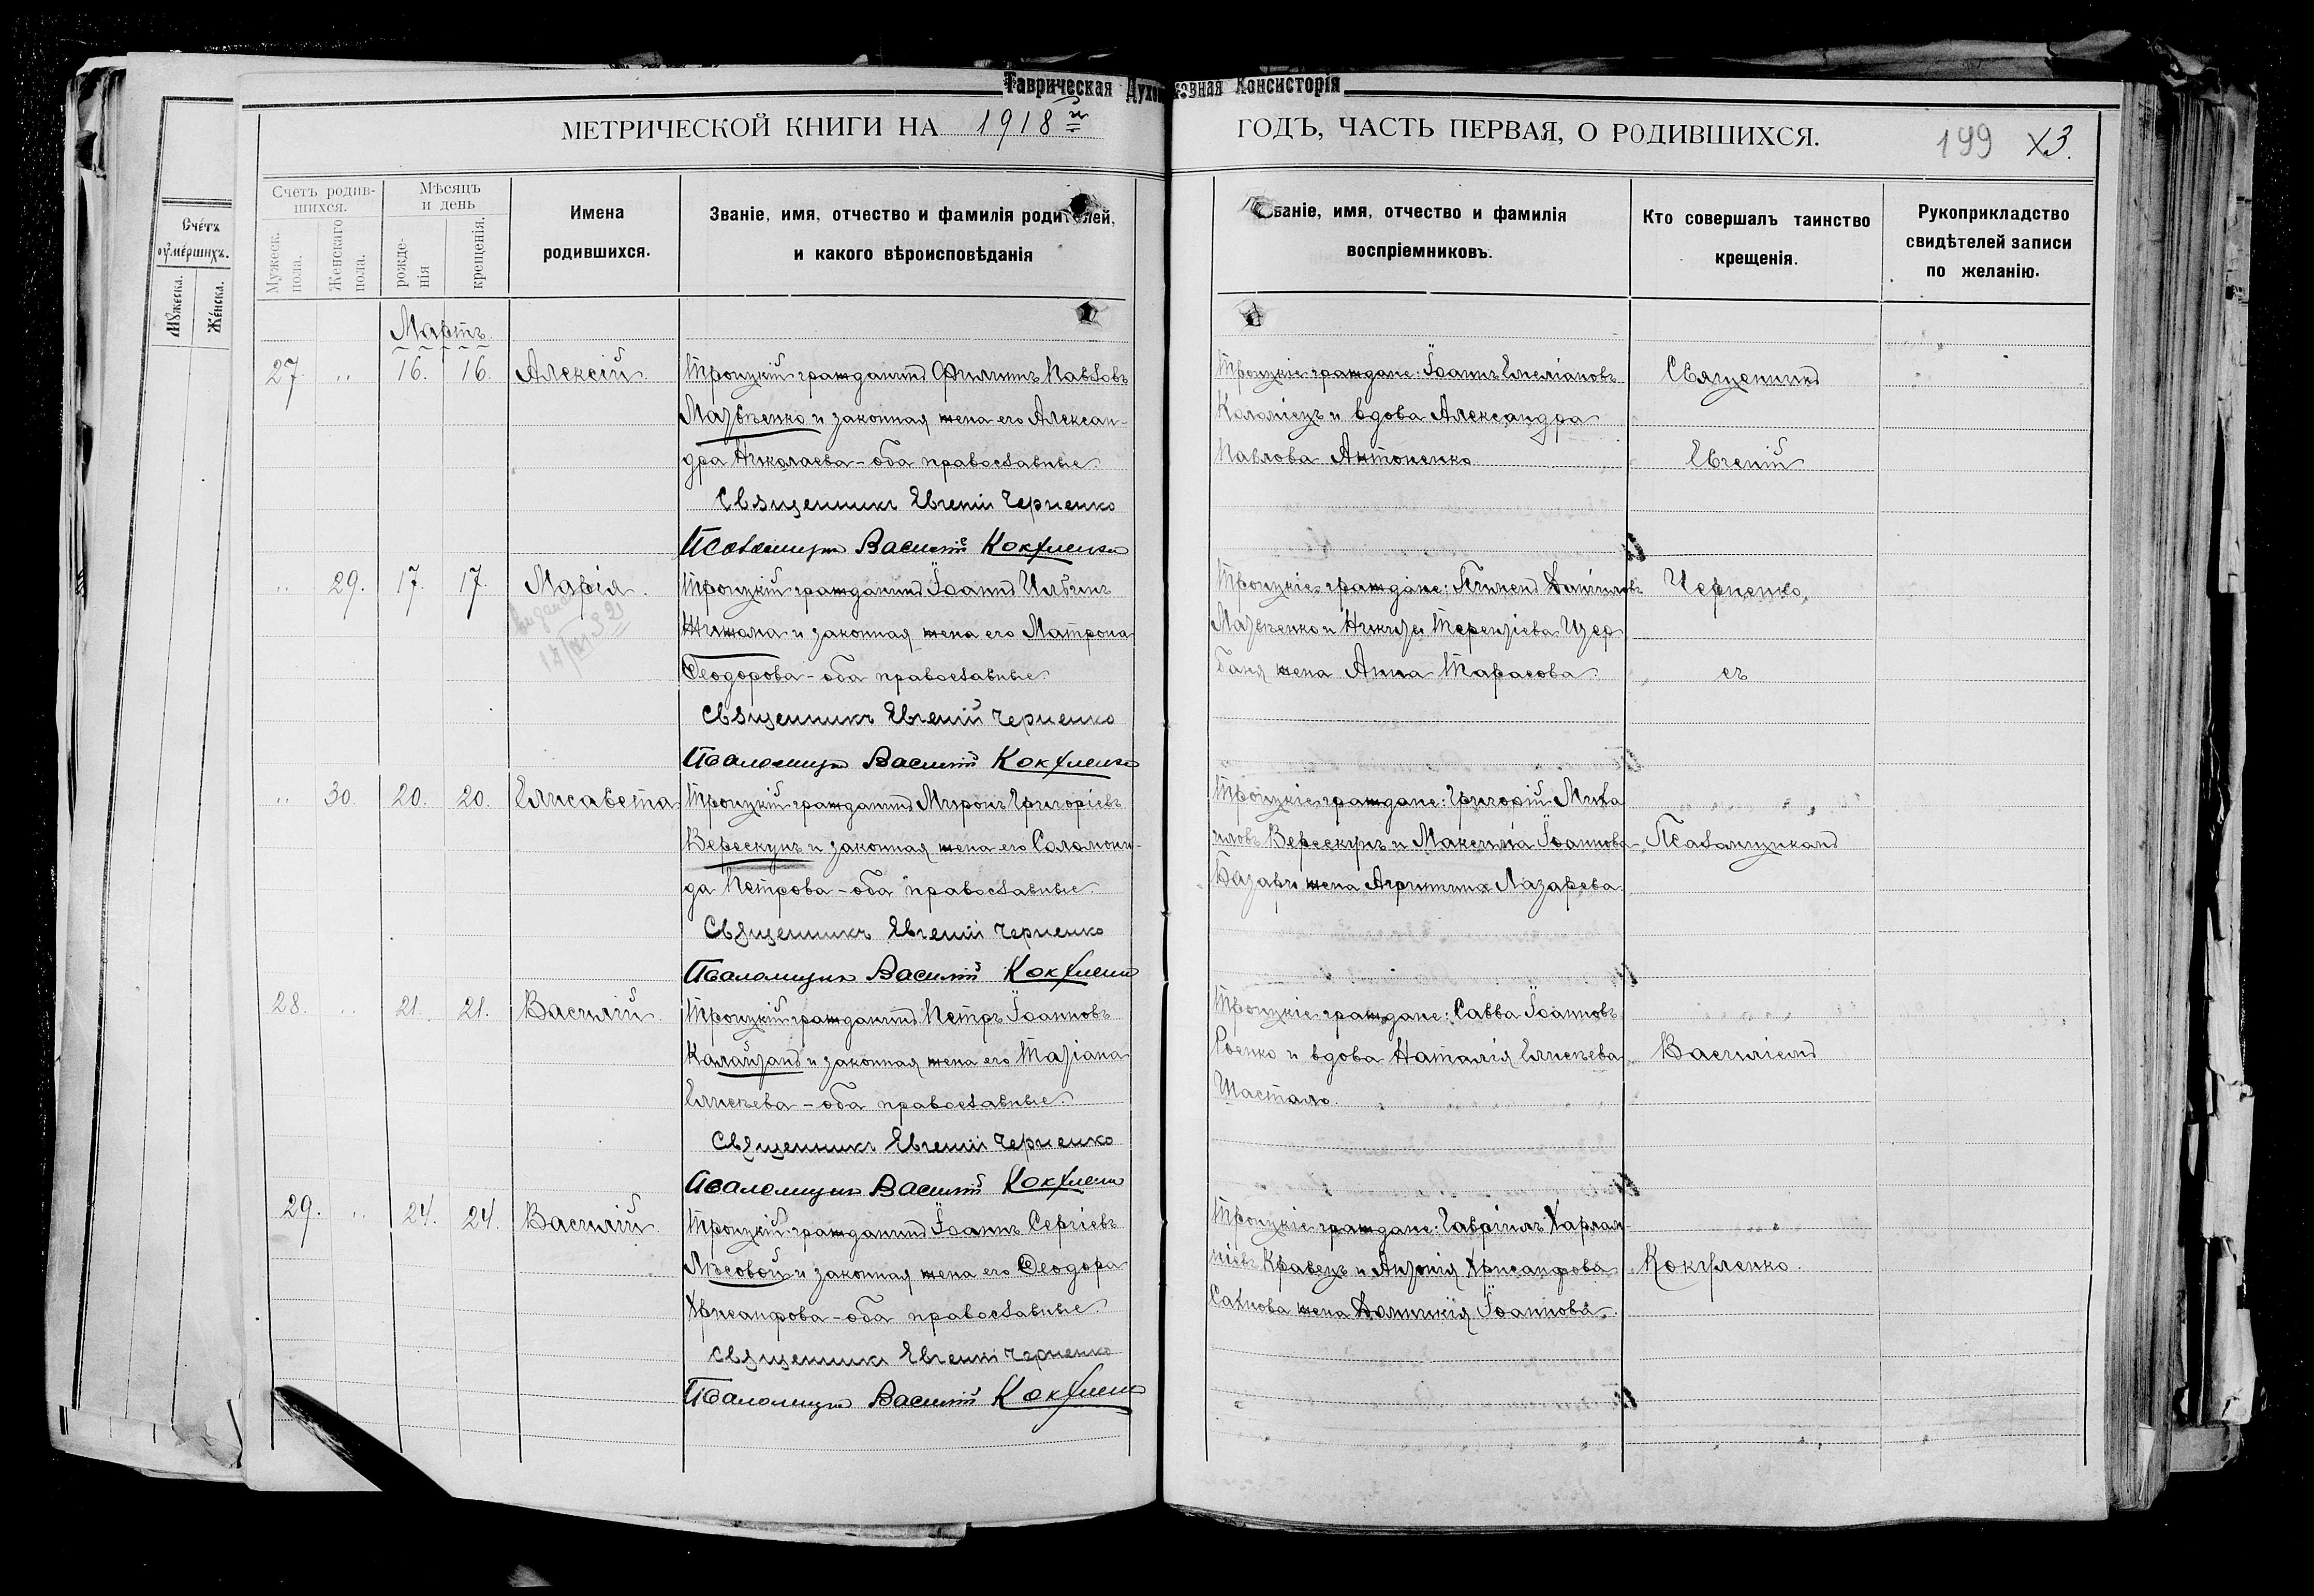 Таврическая Духовная Консисторія
МЕТРИЧЕСКОЙ КНИГИ НА 1918й
ГОДЪ, ЧАСТЬ ПЕРВАЯ, О РОДИВШИХСЯ.
199
Счетъ
Мужеска.
Женска.
Счетъ родив-
шихся.
Мужеск. пола.
Женскаго пола.
Мѣсяцъ
и день
рожде-
нія
крещенія.
Имена
родившихся.
Званіе, имя, отчество и фамилія родителей,
и какого вѣроисповѣданія
Званіе, имя, отчество и фамилія
воспріемниковъ.
Кто совершалъ таинство
крещенія.
Рукоприкладство
свидѣтелей записи
по желанію.
Мартъ.
27. " 16. 16. Алексій.
Троицкій гражданинъ Филиппъ Павловъ
Мазѣенко и законная жена его Алексан-
дра Николаева - оба православные.
Священникъ Евгеній Черненко
Псаломщикъ Василій Кокуленко
Троицкіе граждане: Іоаннъ Емеліановъ
Коломіецъ и вдова Александра
Павлова Антоненко
" 29. 17. 17. Марія.
Троицкій гражданинъ Іоаннъ
и законная жена его Матрона
Ѳеодорова - оба православные.
Священникъ Евгеній Черненко
Псаломщикъ Василій Кокуленко
Троицкіе граждане: Даніиловъ
Мазѣенко и Терентіева
жена Анна Тарасова.
" 30 20. 20. Елисавета
Троицкій гражданинъ Миронъ Григоріевъ
Верескунъ и законная жена его Соломони-
да Петрова - оба православные.
Священникъ Евгеній Черненко
Псаломщикъ Василій Кокуленко
Троицкіе граждане: Григорій Миха
иловъ Верескунъ и Максима Іоаннова
жена Агриппина Лазарева.
28. " 21. 21. Василій.
Троицкій гражданинъ Петръ Іоанновъ
и законная жена его Татіана
Елисѣева - оба православные.
Священникъ Евгеній Черненко
Псаломщикъ Василій Кокуленко
Троицкіе граждане: Савва Іоанновъ
и вдова Наталія Елисѣева
Шастало.
29. " 24. 24. Василій.
Троицкій гражданинъ Іоаннъ Сергіевъ
Лѣсовой и законная жена его Ѳеодора
Хрисанфова - оба православные.
Священникъ Евгеній Черненко
Псаломщикъ Василій Кокуленко
Троицкіе граждане: Гавріилъ Харлам-
піевъ Кравецъ и Хрисанфова
жена Іоаннова.
Священникъ
Евгеній
Черненко,
съ
Псаломщикомъ
Василіемъ
Кокуленко.